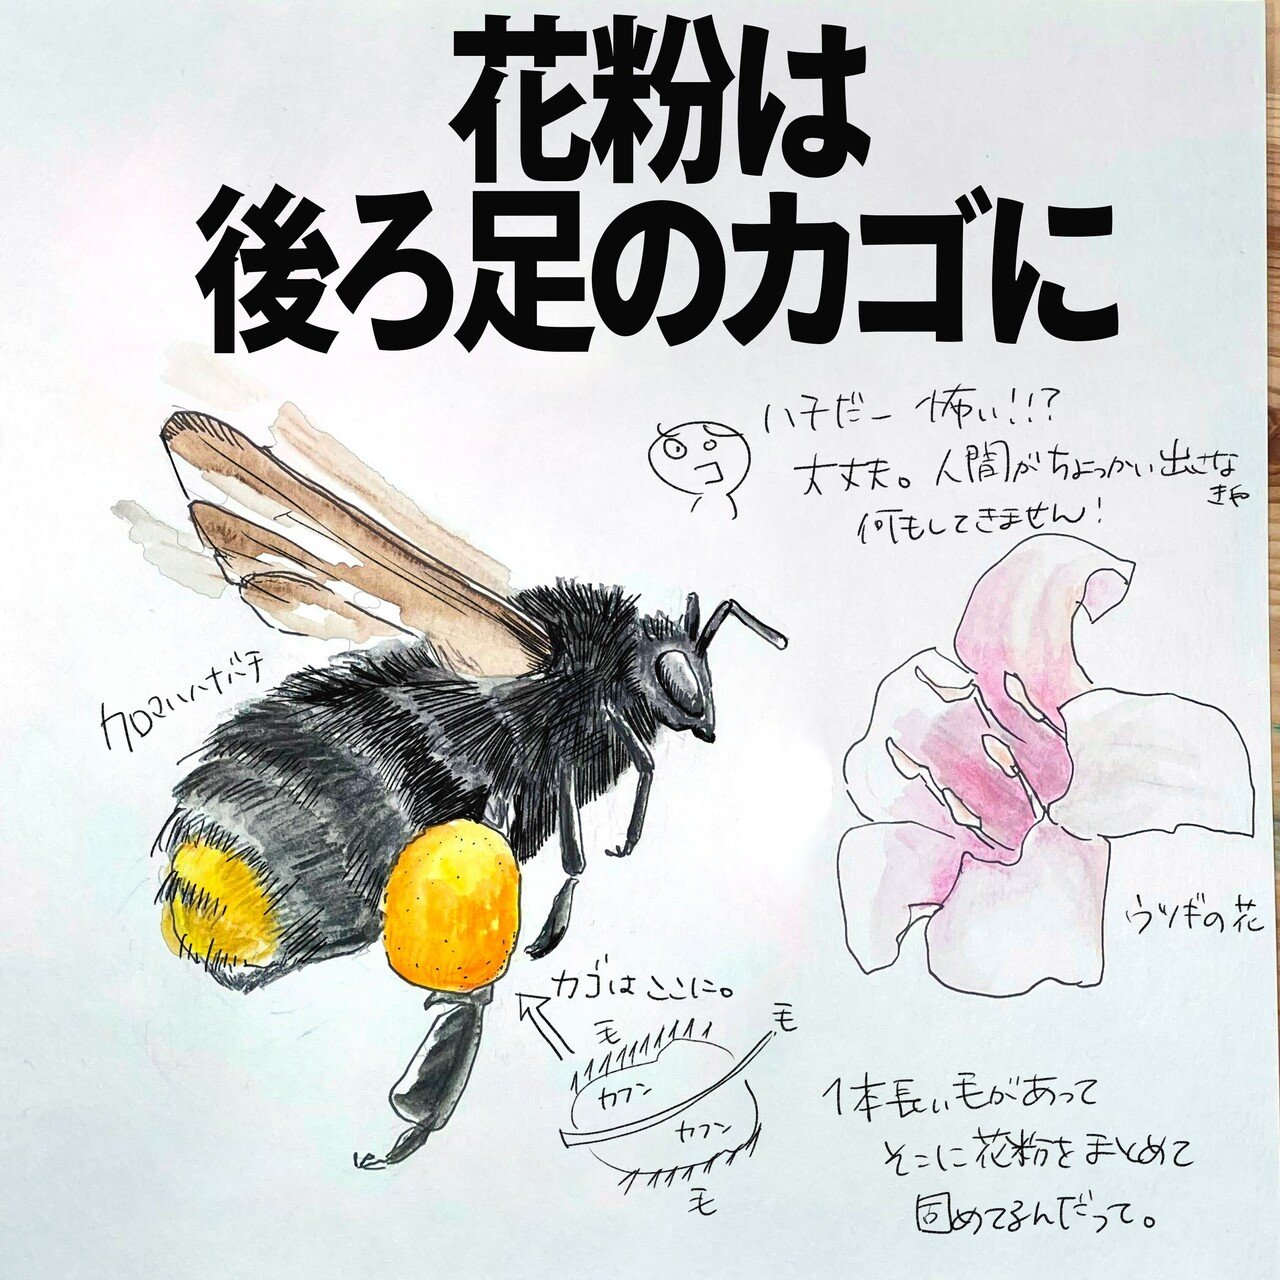 花粉は
後ろ足のカゴに
ハチだー 怖い!!?
大丈夫。人間がちょっかい出さな
きゃ
何もしてきません!
クロマルハナバチ
ウツギの花
カゴはここに。
毛
毛
カフン
カフン
毛
1本長い毛があって
そこに花粉をまとめて
固めてるんだって。